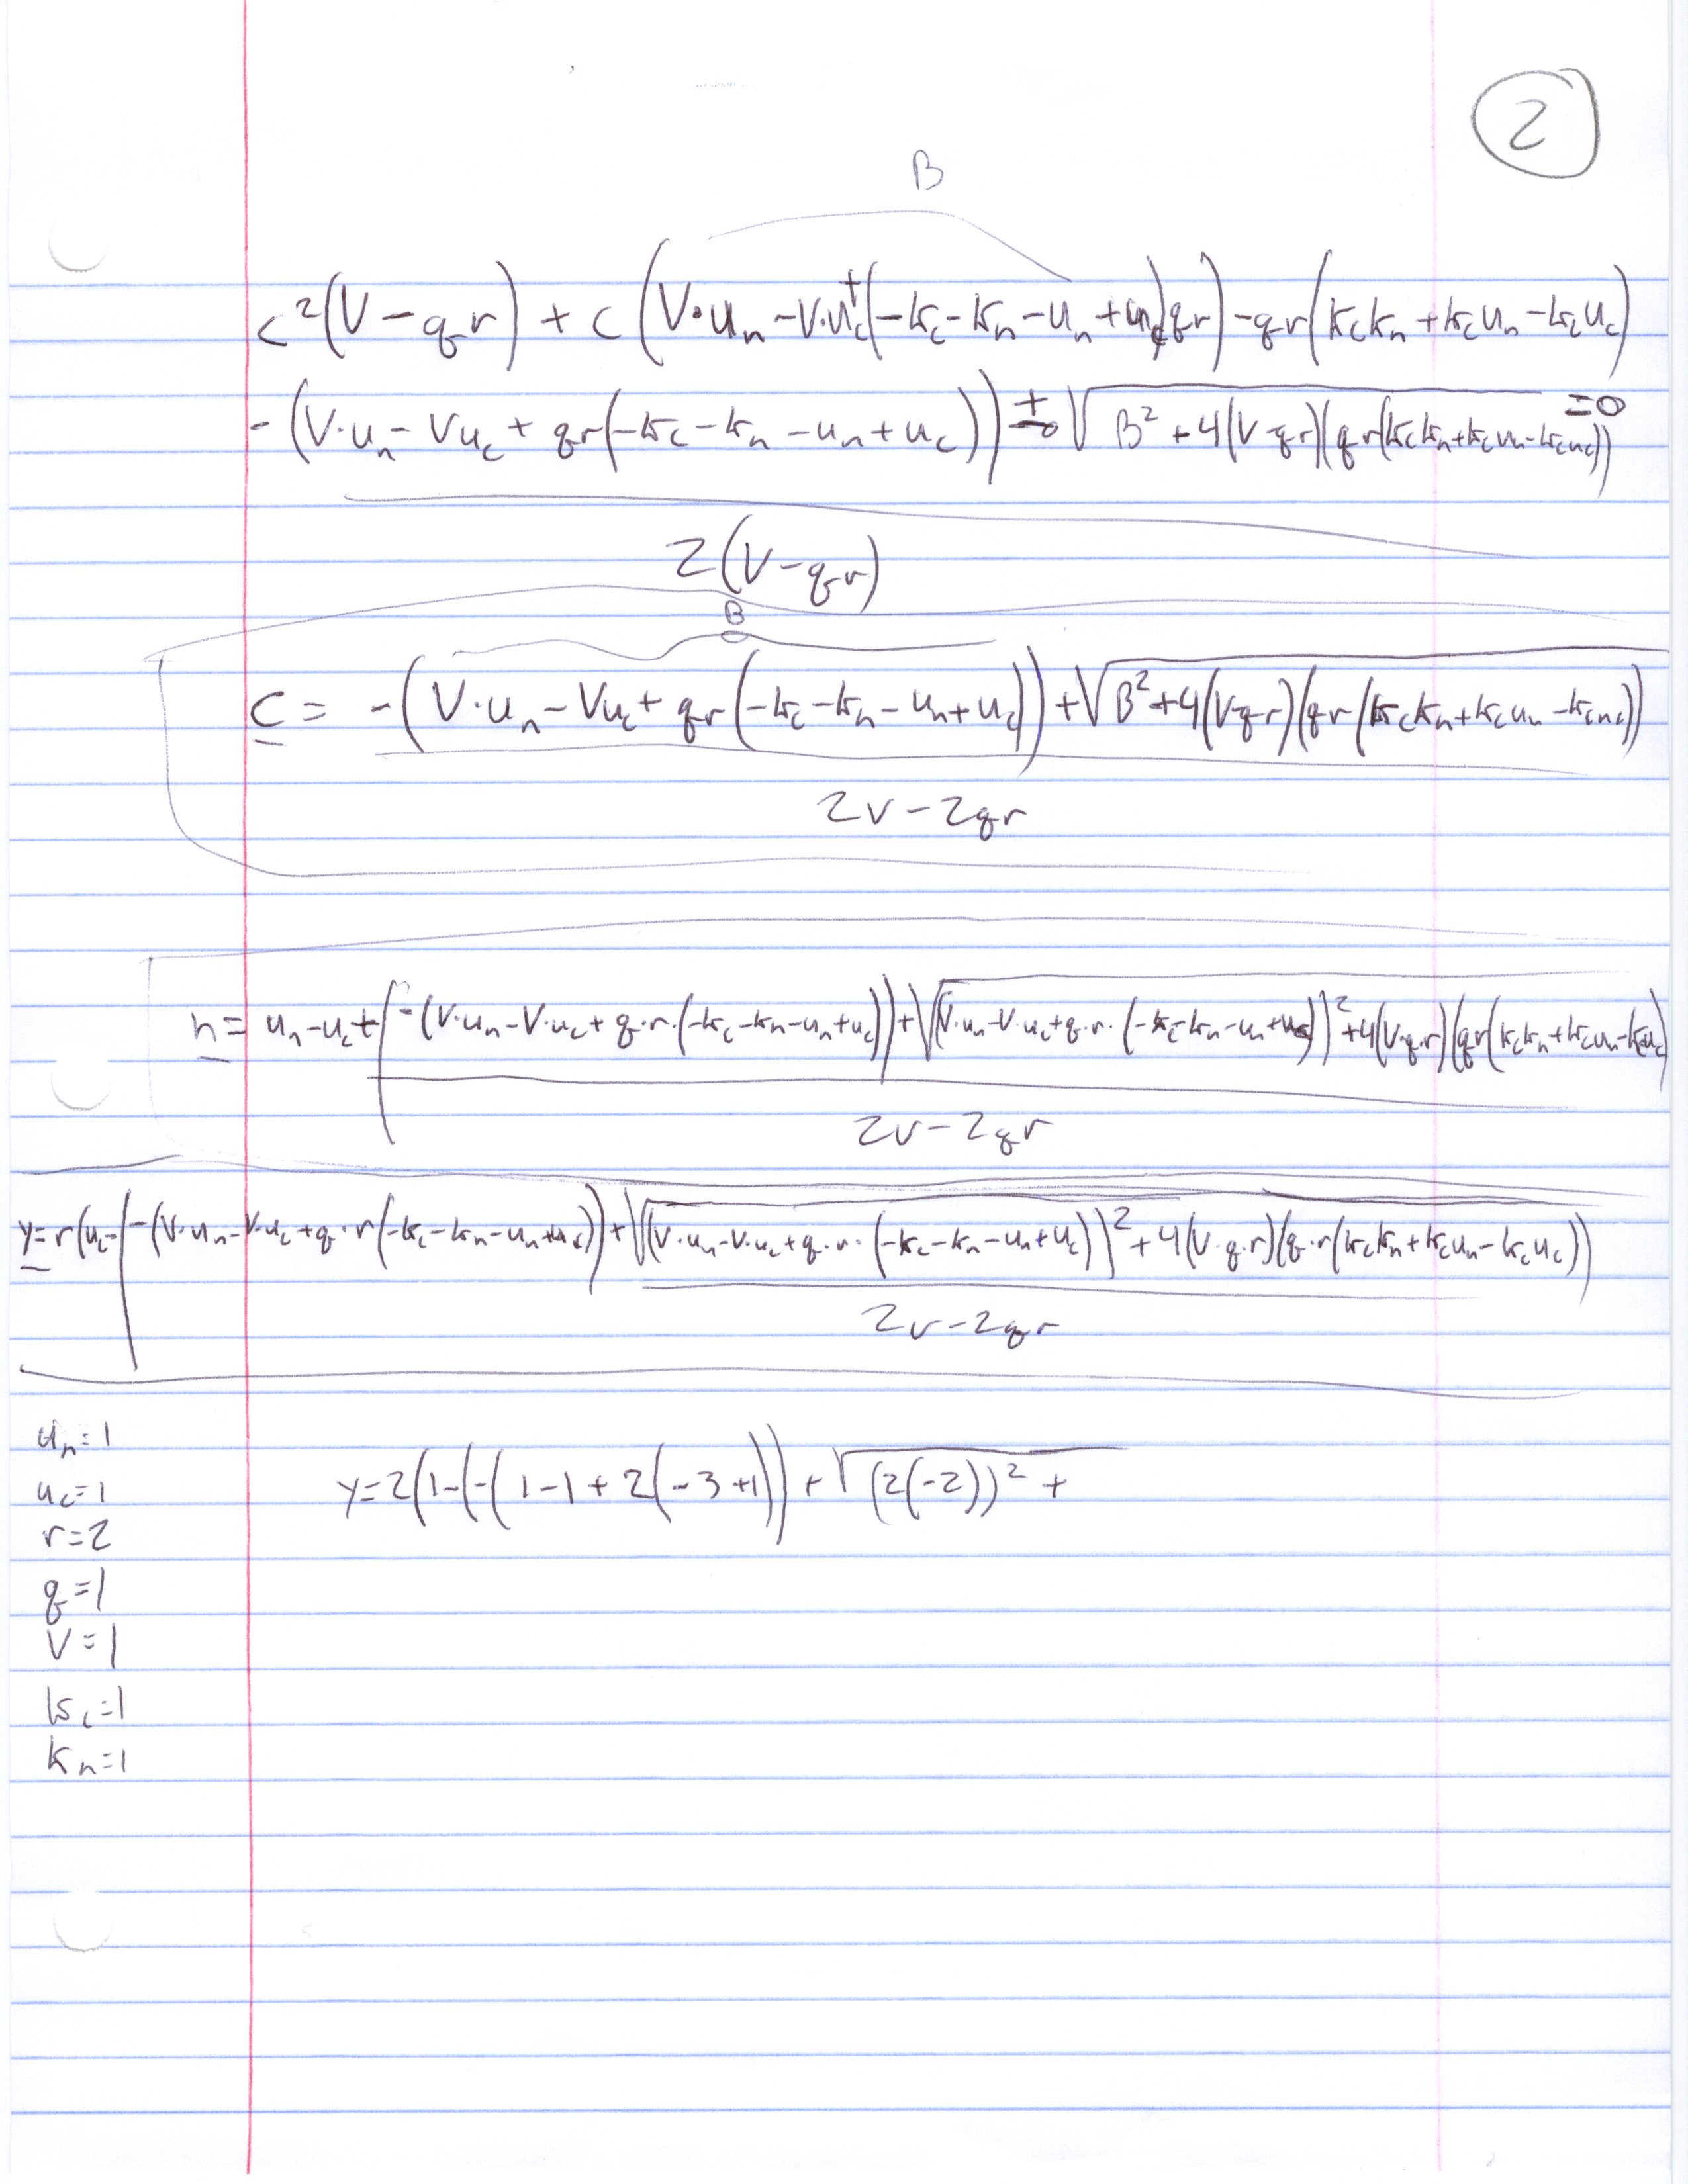 2
B
c²(V-qr) + c(V·uₙ-V·u_c+(-k_c-kₙ-uₙ+u_c)qr)-qr(k_ckₙ+k_cuₙ-k_cu_c)
=0
-(V·uₙ-Vu_c+qr(-k_c-kₙ-uₙ+u_c))±√B²+4(V-qr)(qr(k_ckₙ+k_cuₙ-k_cu_c))
2(V-qr)
B
c = -(V·uₙ-Vu_c+qr(-k_c-kₙ-uₙ+u_c))+√B²+4(V-qr)(qr(k_ckₙ+k_cuₙ-k_cu_c))
2V-2qr
n= uₙ-u_c+(-(V·uₙ-V·u_c+q·r·(-k_c-kₙ-uₙ+u_c))+√(V·uₙ-V·u_c+q·r·(-k_c-kₙ-uₙ+u_c))²+4(V-q·r)(qr(k_ckₙ+k_cuₙ-k_cu_c)
2V-2qr
y=r(u_c-(-(V·uₙ-V·u_c+q·r(-k_c-kₙ-uₙ+u_c))+√((V·uₙ-V·u_c+q·r·(-k_c-kₙ-uₙ+u_c))²+4(V-q·r)(q·r(k_ckₙ+k_cuₙ-k_cu_c))
2V-2qr
uₙ=1
y=2(1-(-(1-1+2(-3+1))+√(2(-2))²+
u_c=1
r=2
q=1
V=1
k_c=1
kₙ=1